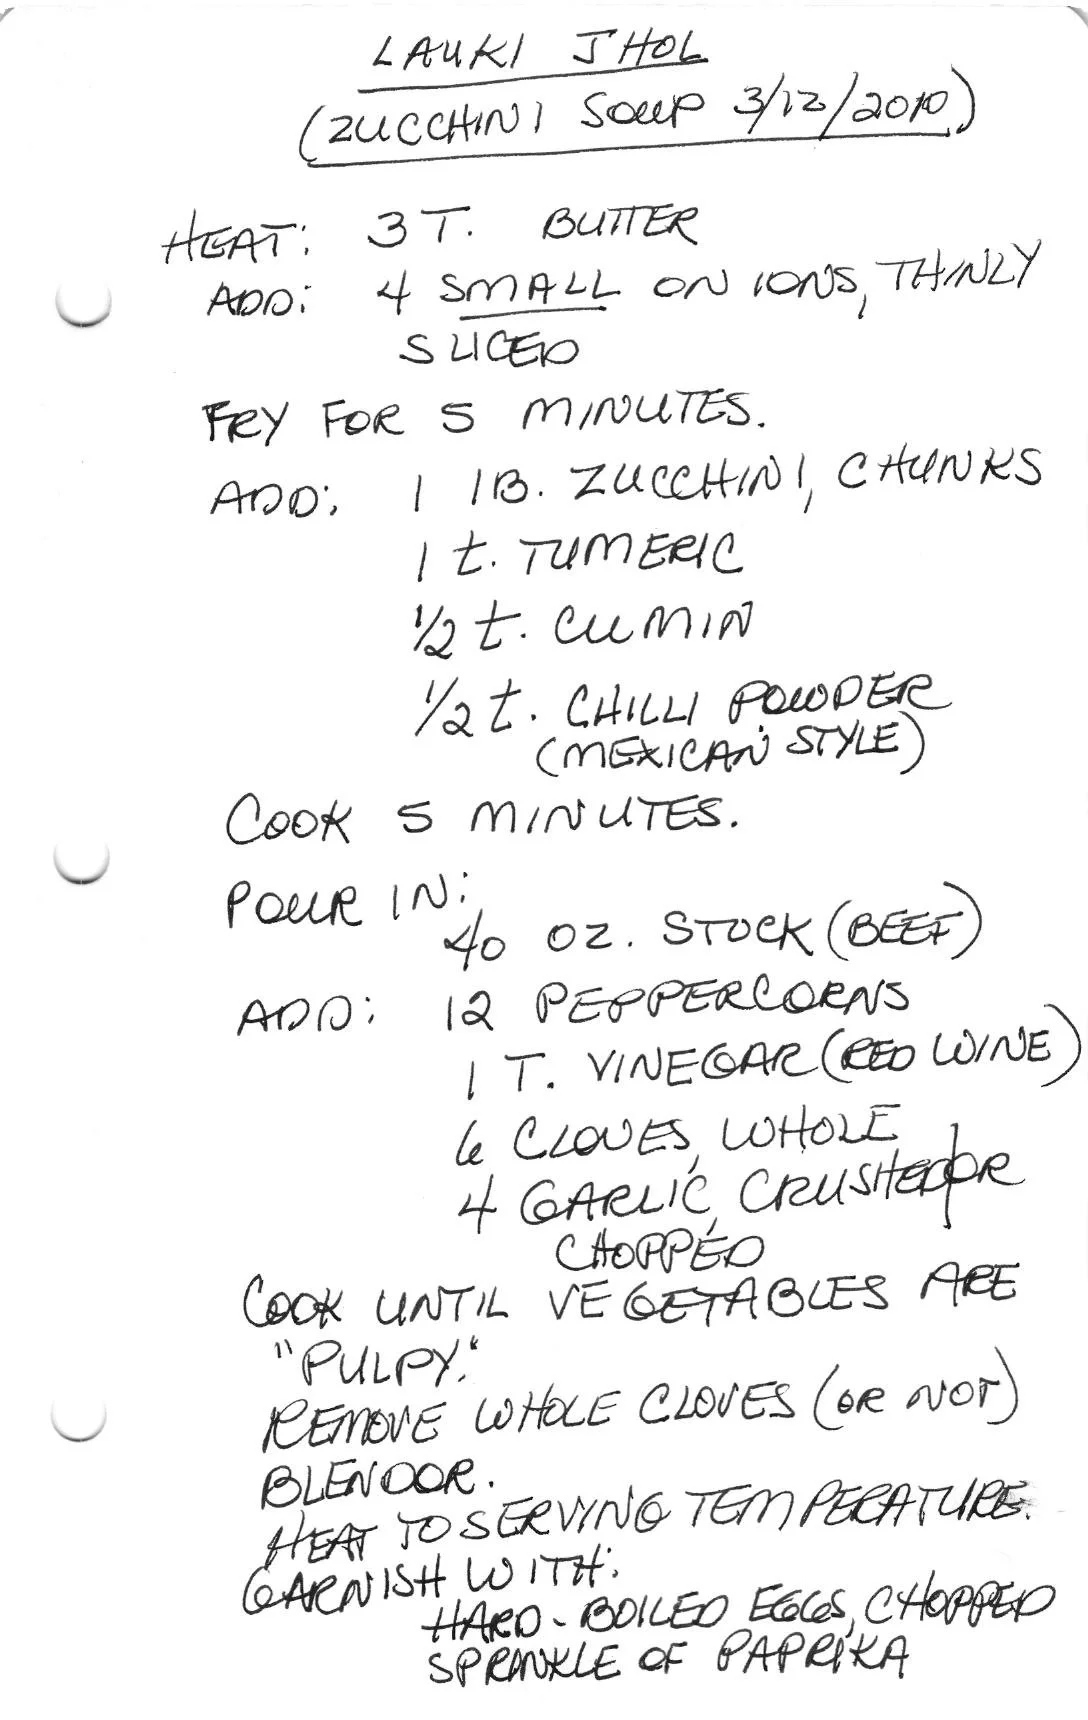 LAUKI JHOL
(ZUCCHINI SOUP 3/12/2010)
HEAT: 3 T. BUTTER
ADD: 4 SMALL ONIONS, THINLY
SLICED
FRY FOR 5 MINUTES.
ADD: 1 1B. ZUCCHINI, CHUNKS
1 t. TUMERIC
1/2 t. CUMIN
1/2 t. CHILLI POWDER
(MEXICAN STYLE)
COOK 5 MINUTES.
POUR IN:
40 OZ. STOCK (BEEF)
ADD: 12 PEPPERCORNS
1 T. VINEGAR (RED WINE)
6 CLOVES, WHOLE
4 GARLIC, CRUSHED OR
CHOPPED
COOK UNTIL VEGETABLES ARE
"PULPY."
REMOVE WHOLE CLOVES (OR NOT)
BLENDOR.
HEAT TO SERVING TEMPERATURE.
GARNISH WITH:
HARD-BOILED EGGS, CHOPPED
SPRINKLE OF PAPRIKA